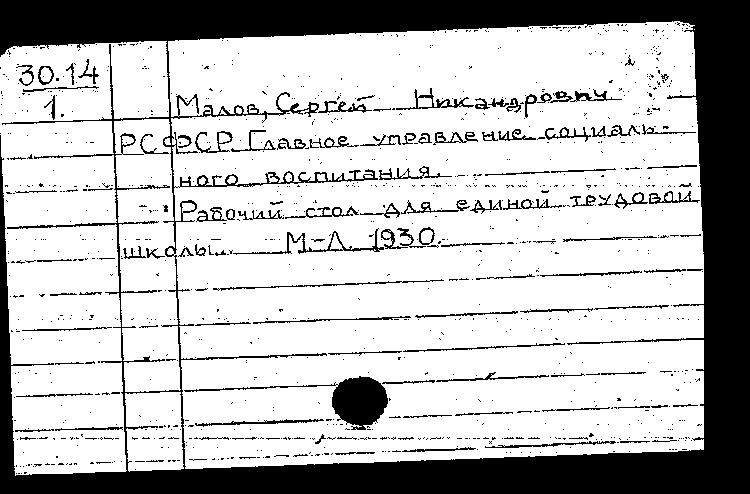 30.14
1.
Малов, Сергей Никандрович
РСФСР. Главное управление социаль-
ного воспитания.
Рабочий стол для единой трудовой
школы... М.-Л. 1930.